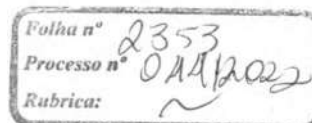 Folha nº 2353
Processo nº 011/2022
Rubrica: